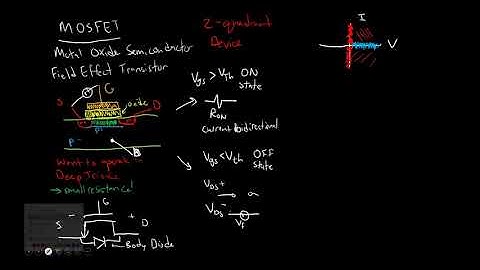 MOSFET
Metal Oxide Semiconductor
Field Effect Transistor
S G oxide D
n+ n+
P-
B
Want to operate in
Deep Triode
→ small resistance!
G
- +
S D
Body Diode
2-quadrant
Device
Vgs > VTh ON
State
RON
Current bidirectional
Vgs < VTh OFF
State
VDS+ →
VDS- →
Vf
I
V